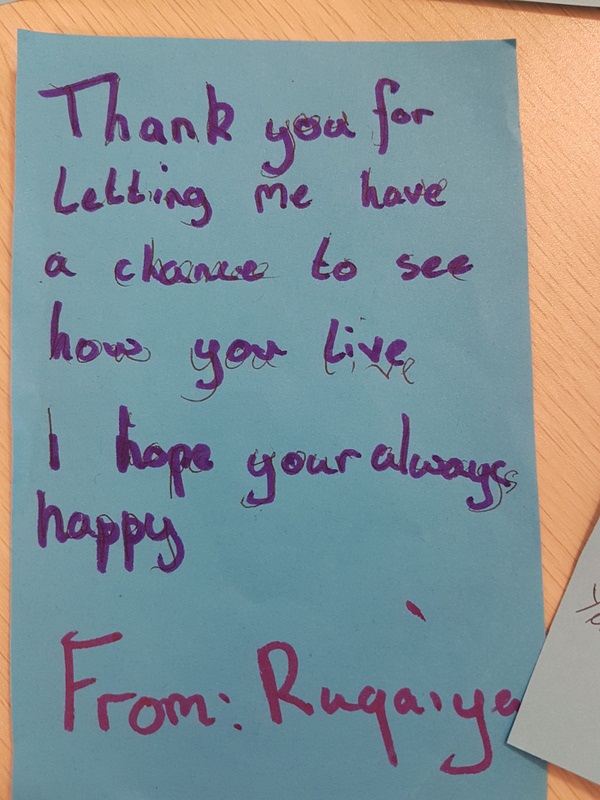 Thank you for
Letting me have
a chance to see
how you live
I hope your always
happy
From: Ruqaiya